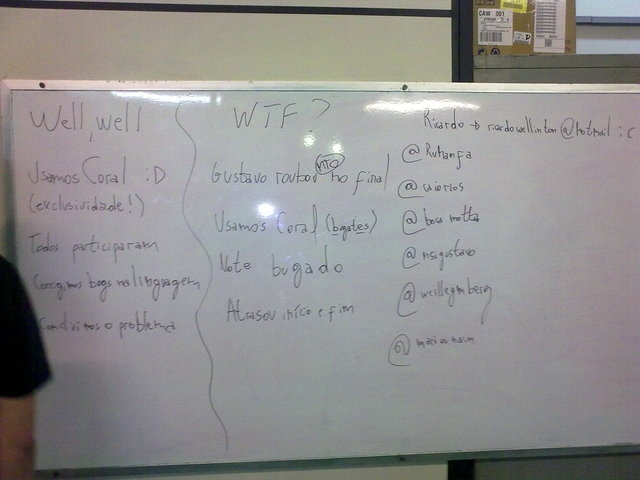 CAW 001
Well, well
Usamos Coral :D
(exclusividade!)
Todos participaram
Corrigimos bugs na linguagem
Concluimos o problema
WTF?
Gustavo roubou no final
Usamos Coral (bugates)
Note bugado
Atrasou início e fim
Ricardo → ricardowellinton@hotmail :c
@Ruhanfa
@caiorlos
@nsigustavo